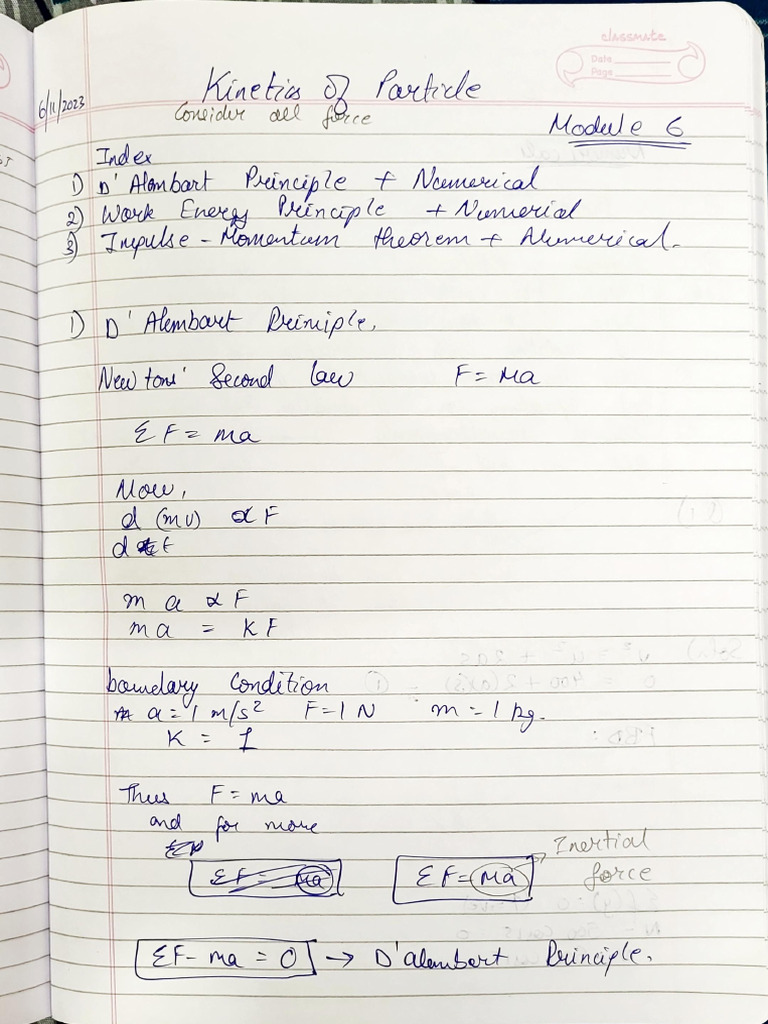 classmate
Date
Page
6/11/2023
Kinetics of Particle
Consider all force
Module 6
Index
1) D'Alembart Principle + Numerical
2) Work Energy Principle + Numerial
3) Impulse - Momentum theorem + Numerical.
1) D'Alembart Priniple.
Newtons' Second law F = Ma
ΣF = ma
Now,
d (mv) ∝ F
dt
m a ∝ F
ma = KF
boundary Condition
a = 1 m/s² F = 1 N m = 1 kg.
K = 1
Thus F = ma
and for more
ΣF = Ma
ΣF = Ma → Inertial force
ΣF - ma = 0 → D'alembart Principle.